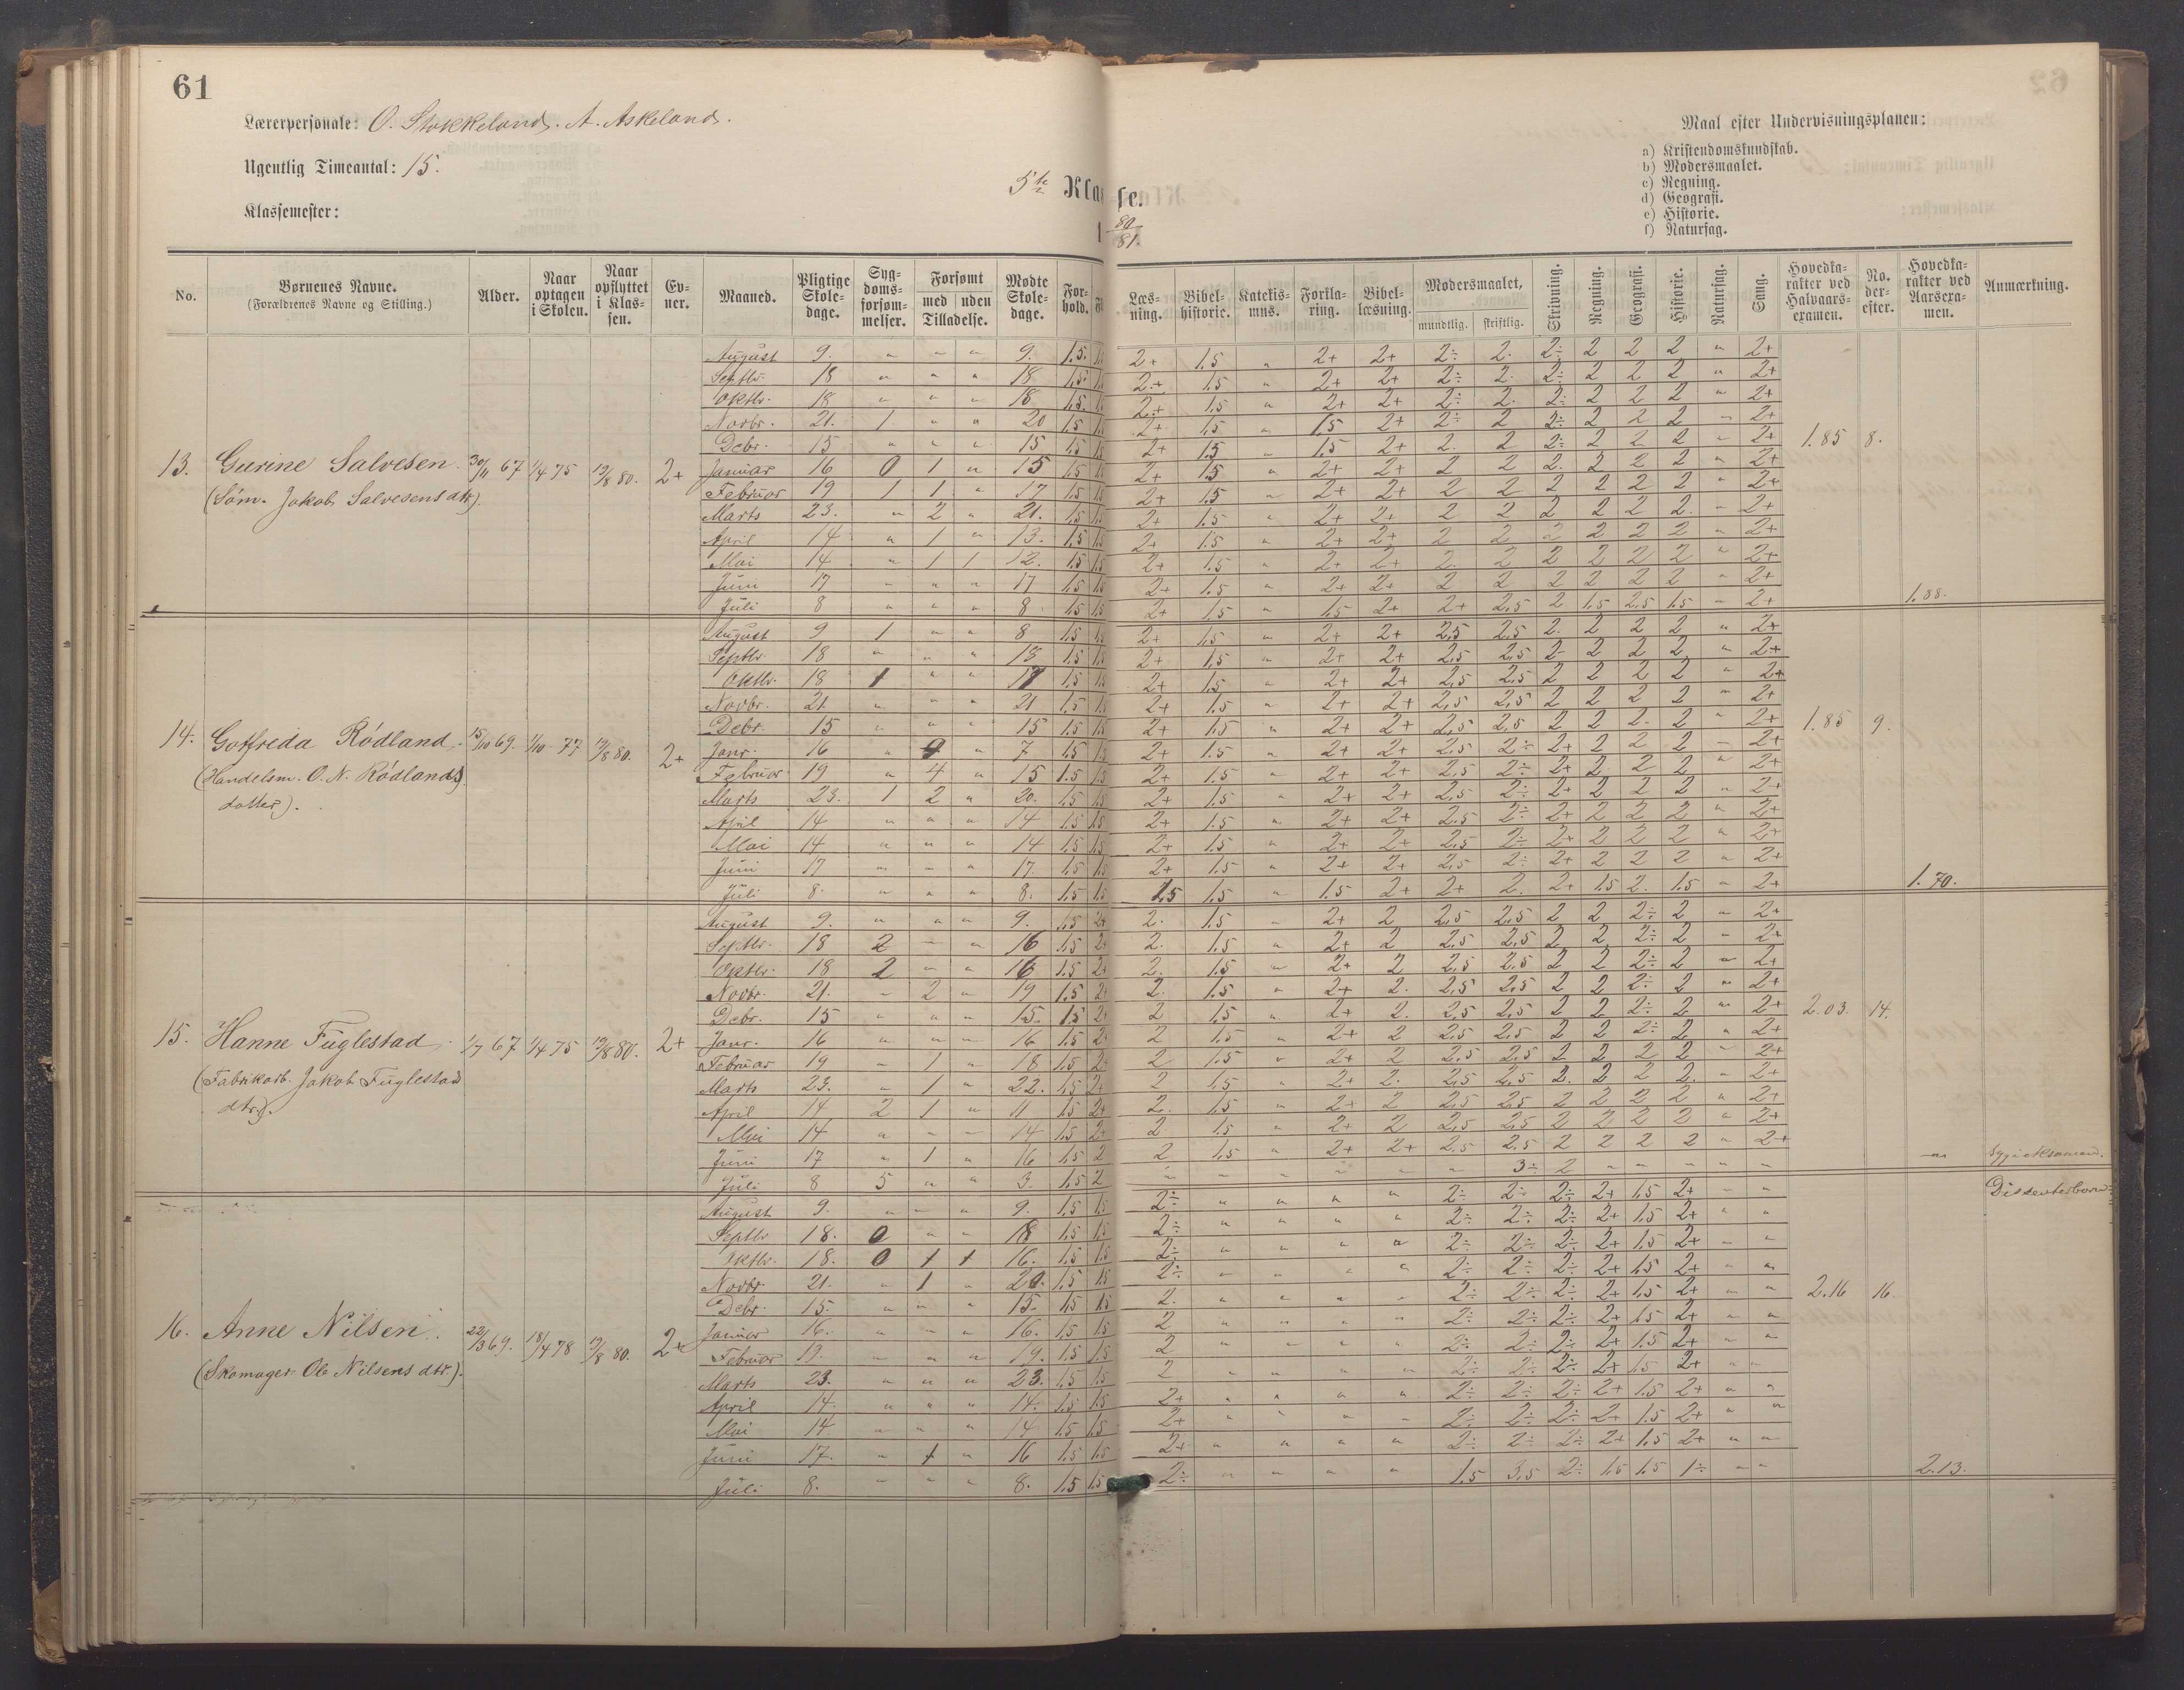 61
Lærerpersonale: O. Stokkeland. A. Askeland.
Ugentlig Timeantal: 15.
Klassemester:
5te Klasse.
1 80/81.
Maal efter Undervisningsplanen:
a) Kristendomskundskab.
b) Modersmaalet.
c) Regning.
d) Geografi.
e) Historie.
f) Naturfag.
No. Børnenes Navne. (Forældrenes Navne og Stilling.) Alder. Naar optagen i Skolen. Naar opflyttet i Klassen. Evner. Maaned. Pligtige Skoledage. Sygdomsforsømmelser. Forsømt med uden Tilladelse. Mødte Skoledage. Forhold. Fl Læsning. Bibelhistorie. Katekismus. Forklaring. Bibellæsning. Modersmaalet, mundtlig. skriftlig. Skrivning. Regning. Geografi. Historie. Naturfag. Sang. Hovedkarakter ved Halvaarsexamen. No. derefter. Hovedkarakter ved Aarsexamen. Anmærkning.
13. Gurine Salvesen. 30/11 67 1/4 75 12/8 80. 2+
(Søm. Jakob Salvesens dtr).
August 9. " " " 9. 1.5. 1.5 2+ 1.5 " 2+ 2+ 2÷ 2. 2÷ 2 2 2 " 2+
Septbr. 18 " " " 18 1.5. 1.5 2+ 1.5 " 2+ 2+ 2÷ 2. 2÷ 2 2 2 " 2+
Oktbr. 18 " " " 18 1.5. 1.5 2+ 1.5 " 2+ 2+ 2÷ 2. 2÷ 2 2 2 " 2+
Novbr. 21. 1. " " 20 1.5 1.5 2+ 1.5 " 1.5 2+ 2÷ 2 2÷ 2 2 2 " 2+
Debr. 15 " " " 15 1.5 1.5 2+ 1.5 " 1.5 2+ 2. 2 2÷ 2 2 2 " 2+ 1.85 8.
Januar 16 0 1 " 15 1.5 1.5 2+ 1.5 " 2+ 2+ 2 2 2. 2 2 2 " 2+
Februar 19 1 1 " 17 1.5 1.5 2+ 1.5 " 2+ 2+ 2 2 2 2 2 2 " 2+
Marts 23. " 2 " 21. 1.5 1.5 2+ 1.5 " 2+ 2+ 2 2 2 2 2 2. " 2+
April 14 " 1 " 13. 1.5 1.5 2+ 1.5 " 2+ 2+ 2 2 2 2 2 2 " 2+
Mai 14 " 1 1 12. 1.5 1.5 2+ 1.5 " 2+ 2+ 2. 2 2 2 2 2 " 2+
Juni 17 " " " 17 1.5 1.5 2+ 1.5 " 2+ 2+ 2 2 2 2 2 2 " 2+
Juli 8 " " " 8 1.5 1.5 2+ 1.5 " 1.5 2+ 2+ 2.5 2 1.5 2.5 1.5 " 2+ 1.88.
14. Gotfreda Rødland. 15/10 69. 1/10 77 12/8 80. 2+
(Handelsm. O. N. Rødlands
datter).
August 9 1 " " 8 1.5 1.5 2+ 1.5 " 2+ 2+ 2.5 2.5 2. 2 2 2 " 2+
Septbr. 18 " " " 18 1.5 1.5 2+ 1.5 " 2+ 2+ 2.5 2.5 2 2 2 2 " 2+
Oktbr. 18 1 " " 17 1.5 1.5 2+ 1.5 " 2+ 2+ 2.5 2.5 2 2 2 2 " 2+
Novbr. 21 " " " 21 1.5 1.5 2+ 1.5 " 2+ 2+ 2.5 2.5 2 2 2 2 " 2+
Debr. 15 " " " 15 1.5 1.5 2+ 1.5 " 2+ 2+ 2.5 2.5 2 2 2. 2 " 2+ 1.85 9.
Janr. 16 " 9 " 7. 1.5 1.5 2+ 1.5 " 2+ 2+ 2.5 2÷ 2+ 2 2 2 " 2+
Februar 19 " 4 " 15 1.5 1.5 2+ 1.5 " 2+ 2+ 2.5 2÷ 2+ 2 2 2 " 2+
Marts 23. 1 2 " 20. 1.5 1.5 2+ 1.5 " 2+ 2+ 2.5 2÷ 2+ 2 2 2 " 2+
April 14 " " " 14 1.5 1.5 2+ 1.5 " 2+ 2+ 2.5 2÷ 2+ 2 2 2 " 2+
Mai 14 " " " 14 1.5 1.5 2+ 1.5 " 2+ 2+ 2.5 2÷ 2+ 2 2 2 " 2+
Juni 17 " " " 17. 1.5 1.5 2+ 1.5 " 2+ 2+ 2.5 2÷ 2+ 2 2 2 " 2+
Juli 8. " " " 8. 1.5 1.5 1.5 1.5 " 1.5 2+ 2+ 2. 2+ 1.5 2. 1.5 " 2+ 1.70.
15. Hanne Fuglestad. 1/7 67 1/4 75 12/8 80. 2+
(Fabrikarb. Jakob Fuglestad
dtr.).
August 9. " " " 9. 1.5 2+ 2. 1.5 " 2+ 2 2.5 2.5 2 2 2÷ 2 " 2+
Septbr. 18 2 " " 16 1.5 2+ 2. 1.5 " 2+ 2 2.5 2.5 2 2 2÷ 2 " 2+
Oktbr. 18 2 " " 16 1.5 2+ 2. 1.5 " 2+ 2 2.5 2.5 2 2 2÷ 2 " 2+
Novbr. 21. " 2 " 19 1.5 2+ 2. 1.5 " 2+ 2. 2.5 2.5 2 2 2÷ 2 " 2+
Debr. 15 " " " 15. 1.5 2+ 2 1.5 " 2+ 2. 2.5 2.5 2 2 2÷ 2 " 2+ 2.03. 14.
Janr. 16 " " " 16 1.5 2+ 2 1.5 " 2+ 2 2.5 2.5 2 2 2÷ 2 " 2+
Februar 19 " 1 " 18 1.5 2+ 2 1.5 " 2+ 2 2.5 2.5 2 2 2 2 " 2+
Marts 23. " 1 " 22. 1.5 2+ 2 1.5 " 2+ 2. 2.5 2.5 2. 2 2 2. " 2+
April 14 2 1 " 11 1.5 2+ 2. 1.5 " 2+ 2 2.5 2.5 2 2 2 2 " 2+
Mai 14 " " " 14 1.5 2+ 2 1.5 " 2+ 2 2.5 2.5 2 2 2 2 " 2+
Juni 17 " 1 " 16 1.5 2 2 1.5 " 2+ 2+ 2.5 2.5 2 2 2 2 " 2+
Juli 8 5 " " 3. 1.5 2 " " " " " " 3÷ 2 " " " " " " Syg i Aksamen.
16. Anne Nilsen. 22/3 69. 18/4 78 12/8 80. 2+ Dissenterbarn
(Skomager Ole Nilsens dtr.).
August 9. " " " 9. 1.5 1.5 2÷ " " " " 2÷ 2÷ 2÷ 2+ 1.5 2+ " "
Septbr 18. 0 " " 18 1.5 1.5 2÷ " " " " 2÷ 2÷ 2÷ 2+ 1.5 2+ " "
Oktbr. 18. 0 1 1 16. 1.5 1.5 2÷ " " " " 2÷ 2÷ 2÷ 2+ 1.5 2+ " "
Novbr. 21. " 1 " 20. 1.5 1.5 2÷ " " " " 2÷ 2÷ 2÷ 2+ 1.5 2+ " "
Debr. 15. " " " 15. 1.5 1.5 2. " " " " 2÷ 2÷ 2÷ 2+ 1.5 2+ " " 2.16 16.
Januar 16. " " " 16. 1.5 1.5 2 " " " " 2÷ 2÷ 2÷ 2+ 1.5 2+ " "
Februar 19. " " " 19. 1.5 1.5 2 " " " " 2÷ 2÷ 2÷ 2+ 1.5 2+ " "
Marts 23. " " " 23. 1.5 1.5 2 " " " " 2÷ 2÷ 2÷ 2+ 1.5 2+ " "
April 14. " " " 14. 1.5 1.5 2+ " " " " 2÷ 2÷ 2÷ 2+ 1.5 2+ " "
Mai 14. " " " 14 1.5 1.5 2+ " " " " 2÷ 2÷ 2÷ 2+ 1.5 2+ " "
Juni 17. " 1 " 16 1.5 1.5 2+ " " " " 2÷ 2÷ 2÷ 2+ 1.5 2+ " "
Juli 8. " " " 8. 1.5 1.5 2÷ " " " " 1.5 3.5 2÷ 1.5 1.5 1÷ " " 2.13.